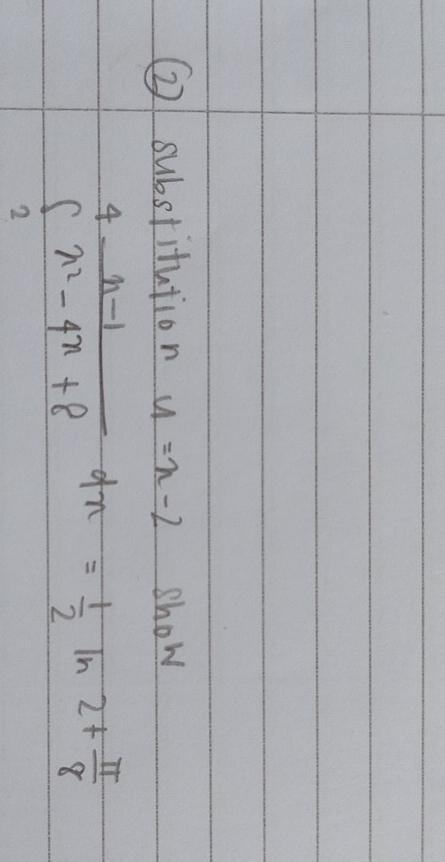 ② substitution u = x-2 show
∫₂⁴ (x-1)/(x² - 4x + 8) dx = 1/2 ln 2 + π/8